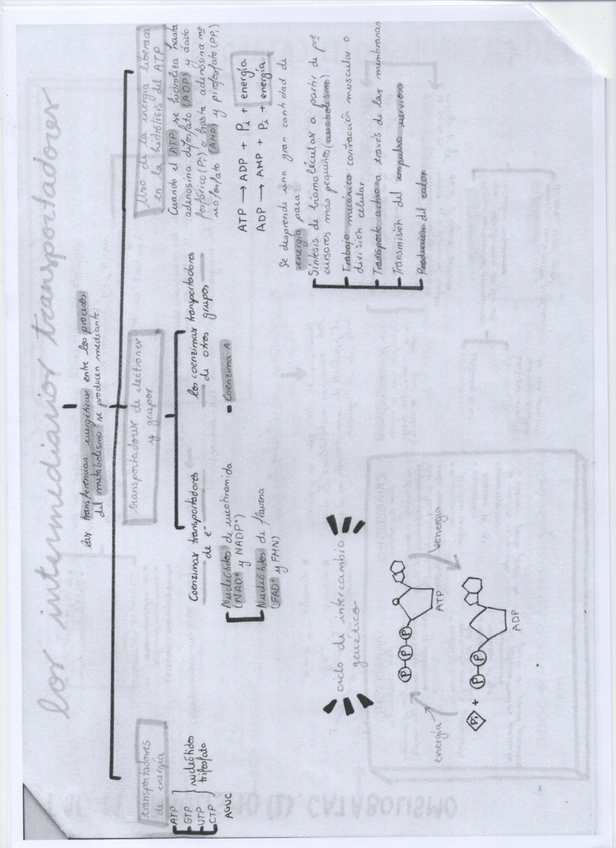 los intermediarios transportadores
las transferencias energéticas entre los procesos
del metabolismo se producen mediante:
transportadores
de energía
ATP
GTP
UTP
CTP
nucleótidos
trifosfato
AGUC
transportadores de electrones
y grupos
Coenzimas transportadores
de e-
Nucleótidos de nicotinamida
(NAD+ y NADP+)
Nucleótidos de flavina
(FAD+ y FMN)
los coenzimas transportadores
de otros grupos
Coenzima A
Uso de la energía liberada
en la hidrólisis del ATP
Cuando el ATP se hidroliza hasta
adenosina difosfato (ADP) y ácido
fosfórico (Pi) o hasta adenosina mo
nofosfato (AMP) y pirofosfato (PPi)
ATP → ADP + Pi + energía
ADP → AMP + Pi + energía
Se desprende una gran cantidad de
energía para:
Síntesis de biomoléculas a partir de pre
cursores más pequeños (anabolismo)
Trabajo mecánico contracción muscular o
división celular
Transporte activo a través de las membranas
Transmisión del impulso nervioso
Producción del calor
ciclo de intercambio
genético
P P P
ATP
energía
energía
Pi + P P
ADP
CATABOLISMO